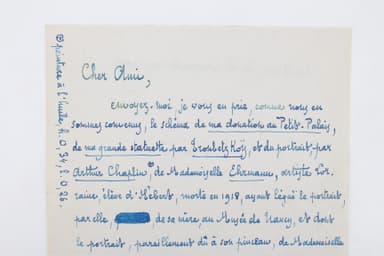 Cher Ami,
envoyez-moi je vous en prie, comme nous en
sommes convenus, le schéma de ma donation au Petit-Palais,
de ma grande statuette par Troubetzkoÿ, et du portrait, par
Arthur Chaplin, ⊕ de Mademoiselle Ehrmann, artiste Lor-
raine, élève d'Hébert, morte en 1918, ayant légué le portrait,
par elle, de sa mère au Musée de Nancy, et dont
le portrait, pareillement dû à son pinceau, de Mademoiselle
⊕ peinture à l'huile, h. 0,34, l. 0,26.